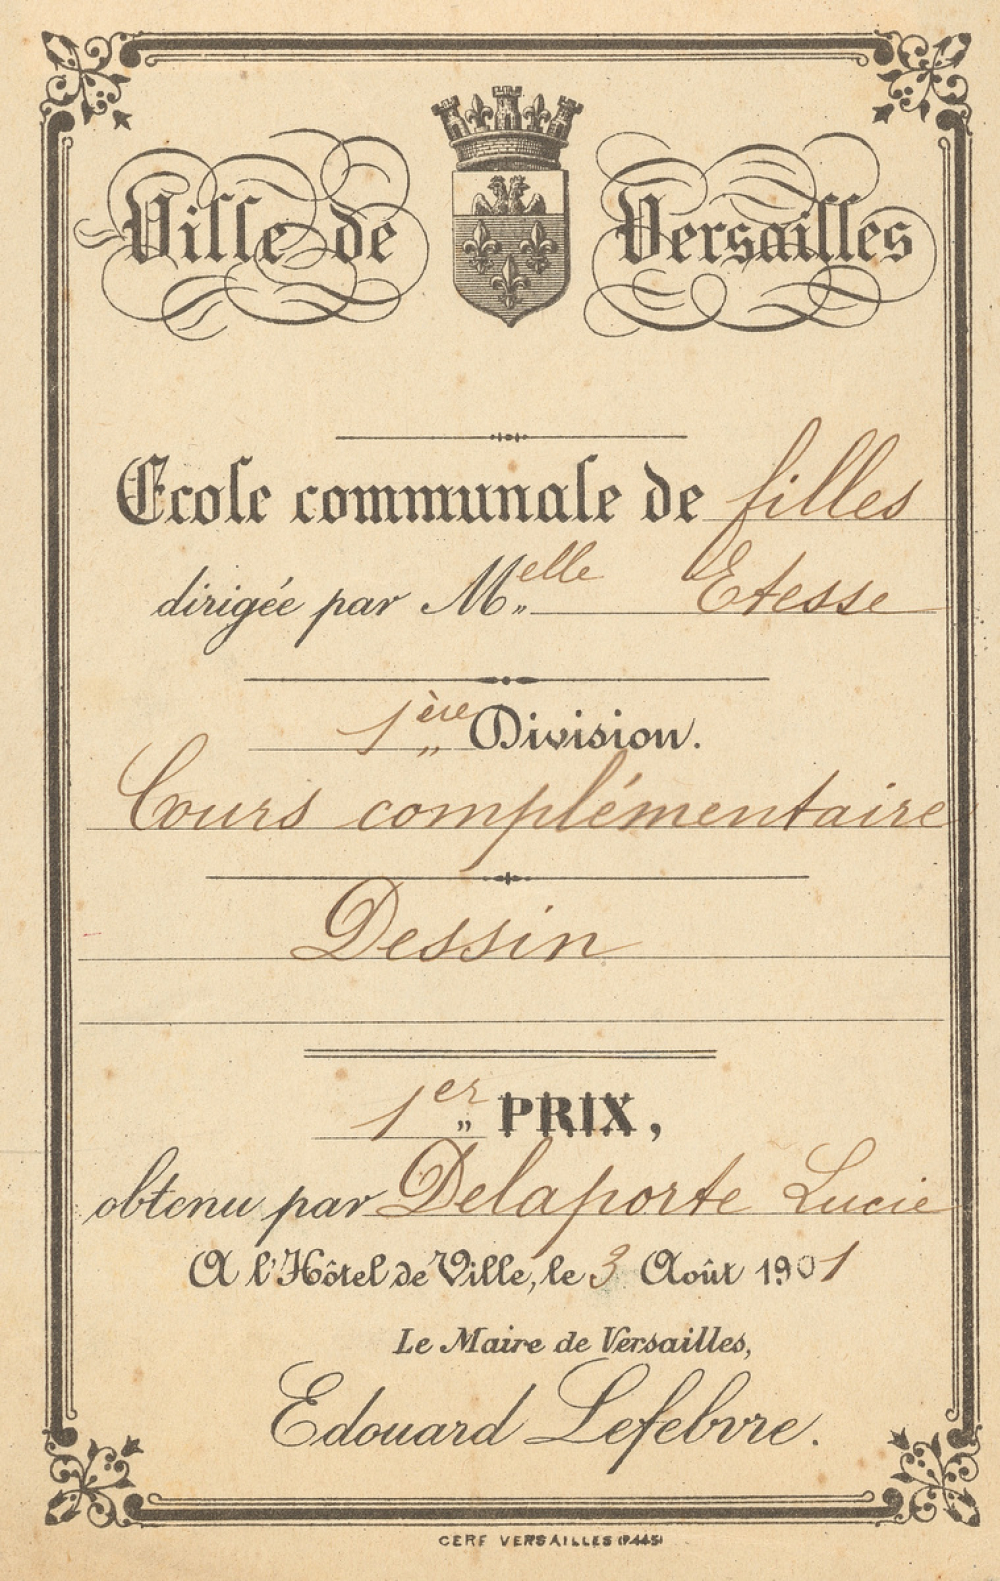 Ville de Versailles
École communale de filles
dirigée par Melle Etesse
1ère Division.
Cours complémentaire
Dessin
1er PRIX,
obtenu par Delaporte Lucie
A l'Hôtel de Ville, le 3 Août 1901
Le Maire de Versailles,
Edouard Lefebvre.
CERF VERSAILLES